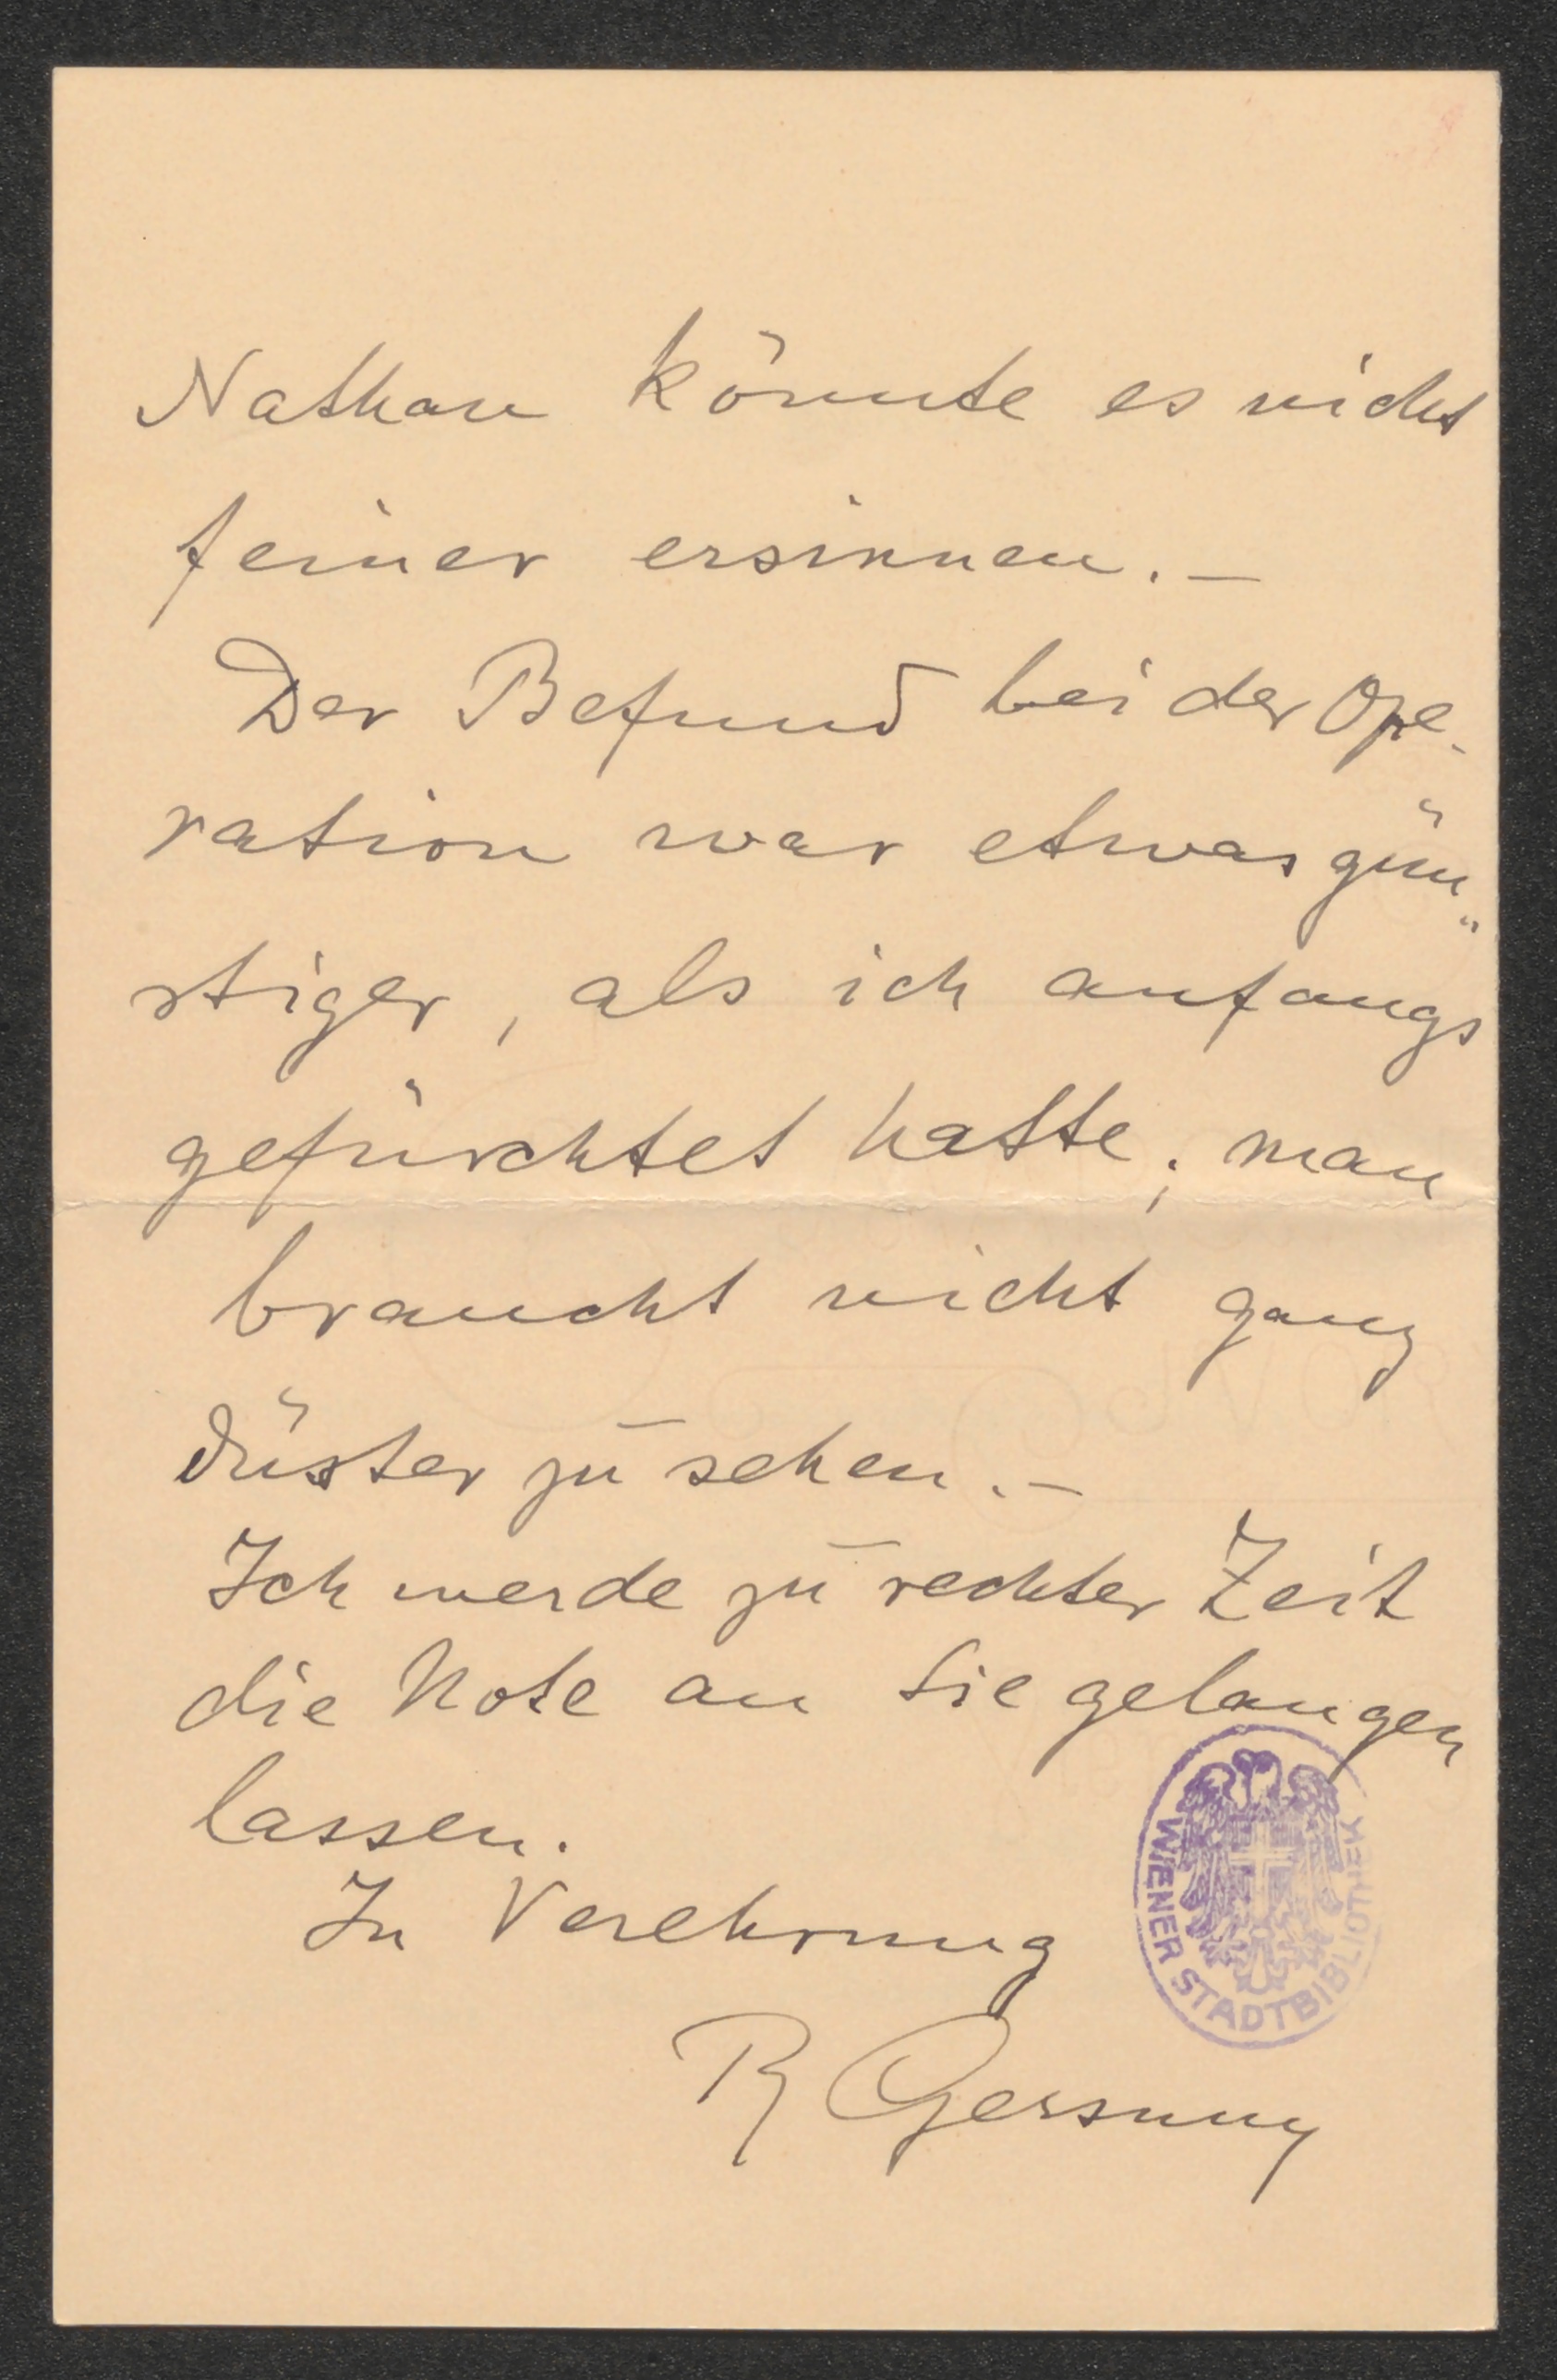 Nathan könnte es nicht
feiner ersinnen. –
Der Befund bei der Ope-
ration war etwas gün„
stiger, als ich anfangs
gefürchtet hatte; man
braucht nicht ganz
düster zu sehen. –
Ich werde zu rechter Zeit
die Note an Sie gelangen
lassen.
In Verehrung
R Gersuny
WIENER STADTBIBLIOTHEK